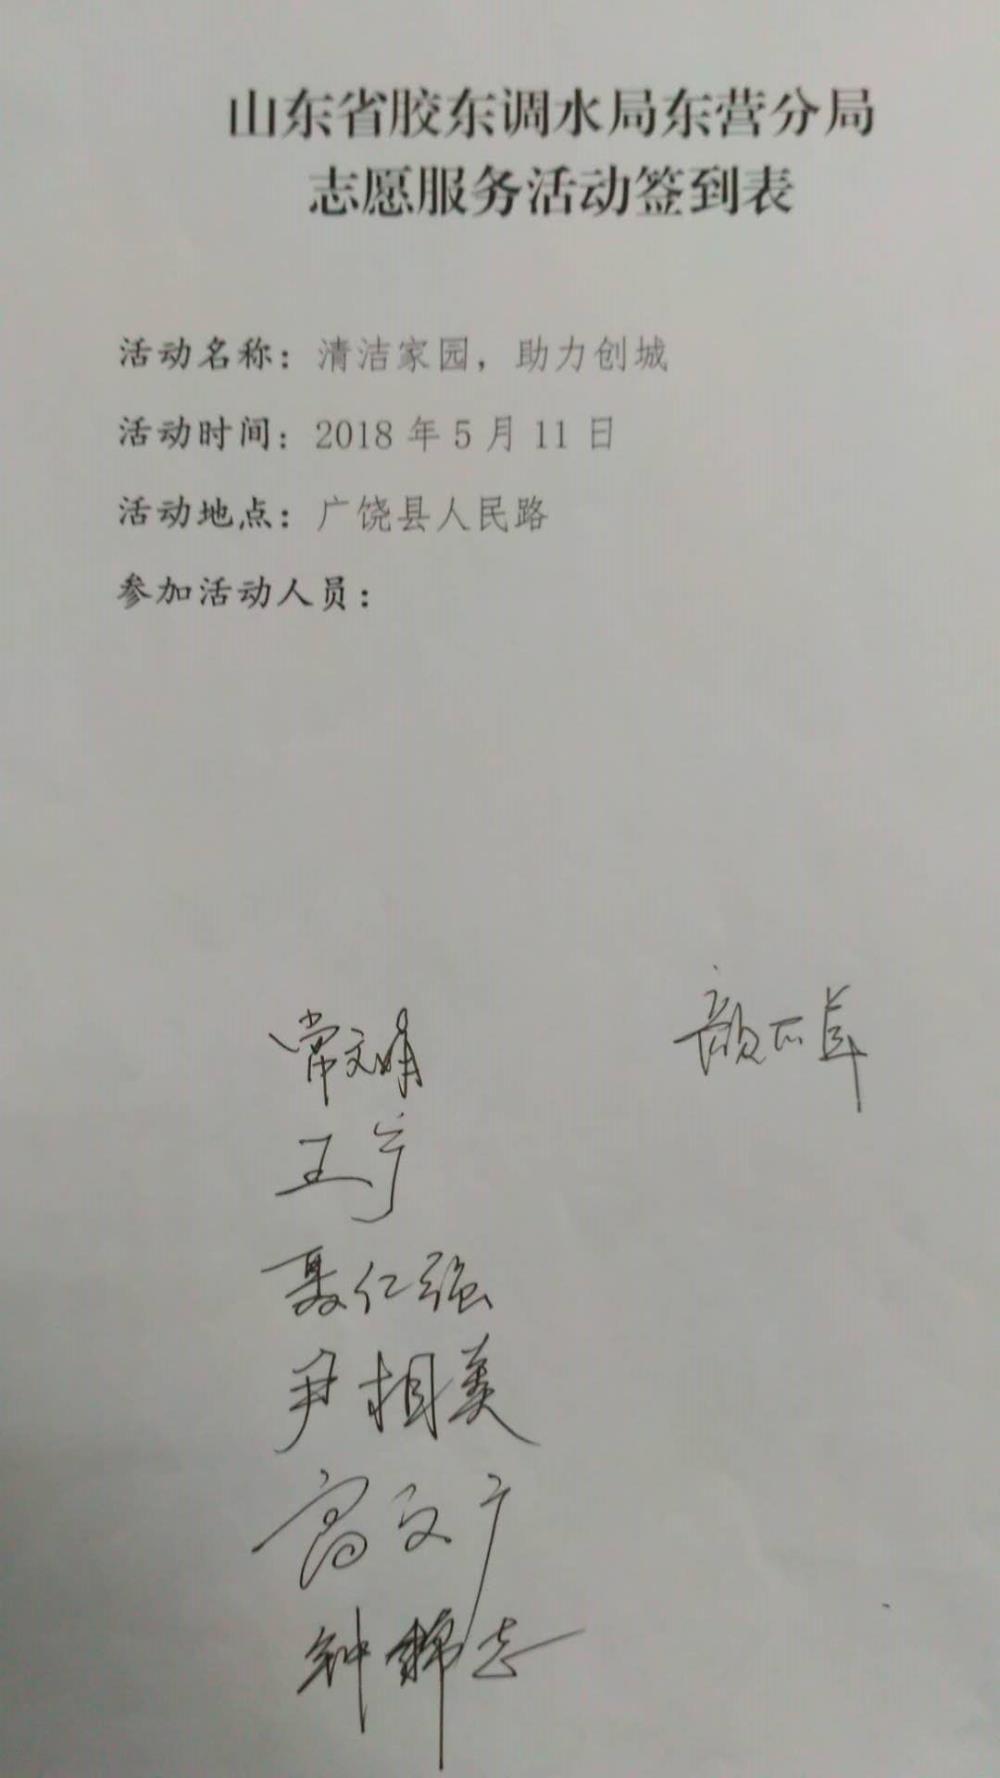 山东省胶东调水局东营分局
志愿服务活动签到表
活动名称：清洁家园，助力创城
活动时间：2018 年 5 月 11 日
活动地点：广饶县人民路
参加活动人员：
常文娟
王宁
聂仁强
尹相美
高文广
钟锦志